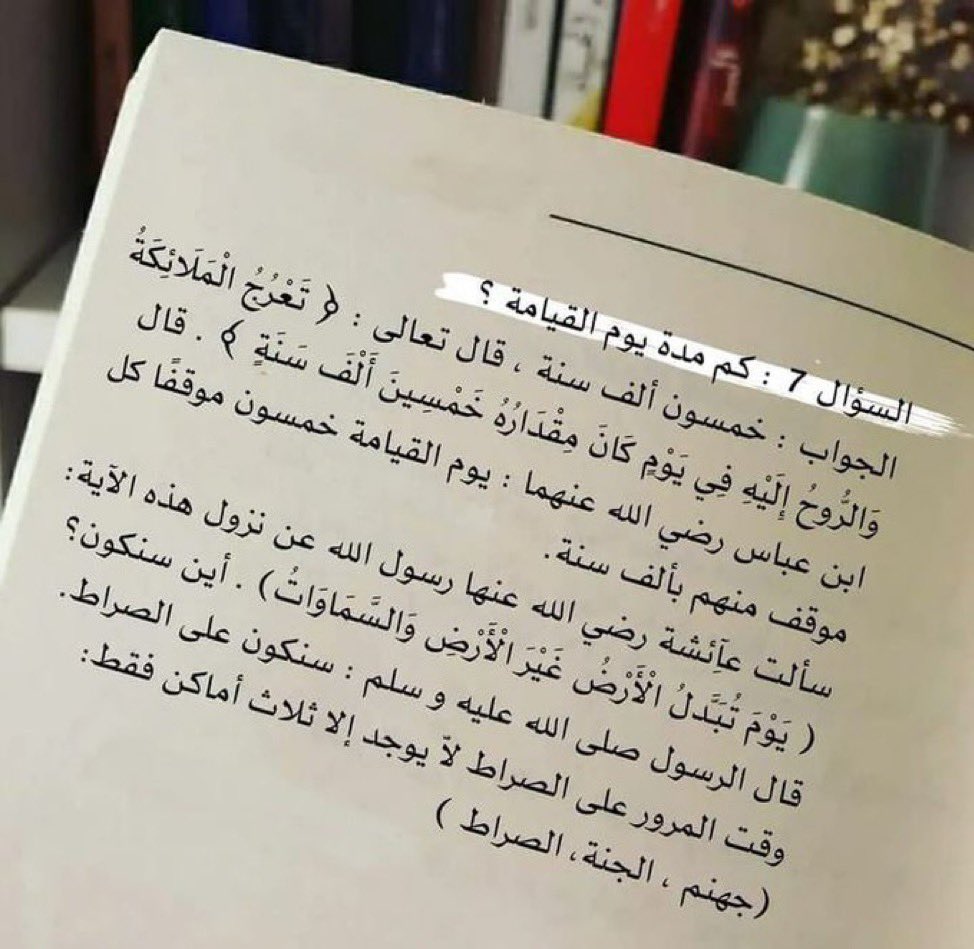 السؤال 7 : كم مدة يوم القيامة ؟
الجواب : خمسون ألف سنة ، قال تعالى : ﴿ تَعْرُجُ الْمَلَائِكَةُ
وَالرُّوحُ إِلَيْهِ فِي يَوْمٍ كَانَ مِقْدَارُهُ خَمْسِينَ أَلْفَ سَنَةٍ ﴾ . قال
ابن عباس رضي الله عنهما : يوم القيامة خمسون موقفًا كل
موقف منهم بألف سنة.
سألت عآئشة رضي الله عنها رسول الله عن نزول هذه الآية:
( يَوْمَ تُبَدَّلُ الْأَرْضُ غَيْرَ الْأَرْضِ وَالسَّمَاوَاتُ) . أين سنكون؟
قال الرسول صلى الله عليه و سلم : سنكون على الصراط.
وقت المرور على الصراط لآ يوجد إلا ثلاث أماكن فقط:
(جهنم ، الجنة، الصراط )